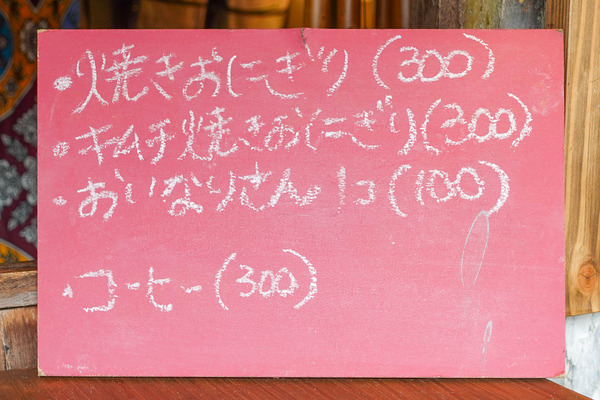 ・焼きおにぎり(300)
・キムチ焼きおにぎり(300)
・おいなりさん1コ(100)
・コーヒー(300)